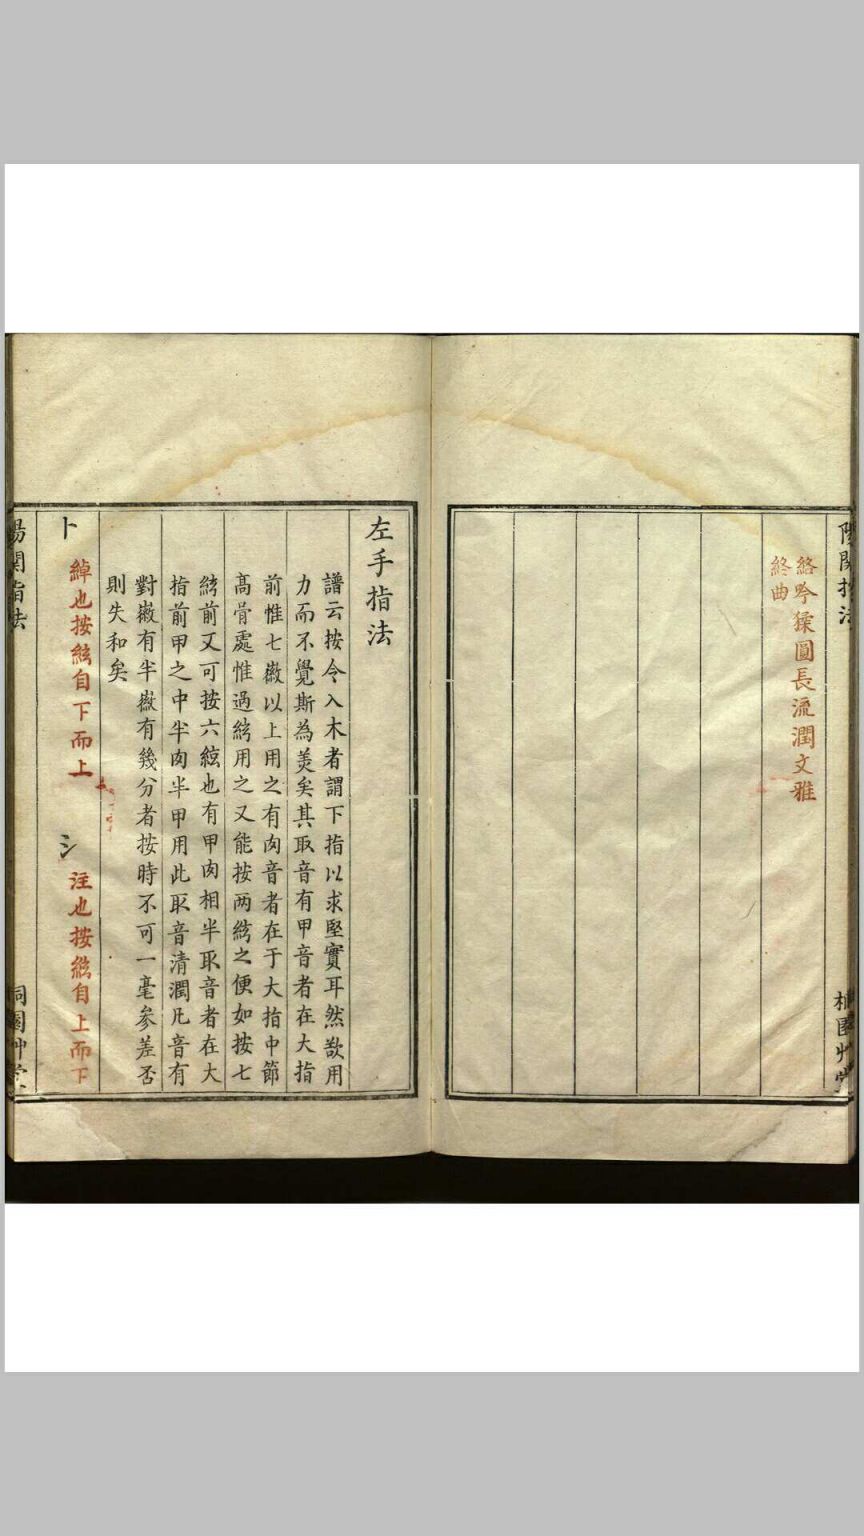 陽關指法
絡吟猱圓長流潤文雅
終曲
桐園艸堂
左手指法
譜云按令入木者謂下指以求堅實耳然歘用
力而不覺斯為美矣其取音有甲音者在大指
前惟七徽以上用之有肉音者在于大指中節
髙骨處惟過絃用之又能按两絃之便如按七
絃前又可按六絃也有甲肉相半取音者在大
指前甲之中半肉半甲用此取音清潤凡音有
對徽有半徽有幾分者按時不可一毫參差否
則失和矣
卜 綽也按絃自下而上 氵 注也按絃自上而下
陽関指法
桐園艸堂